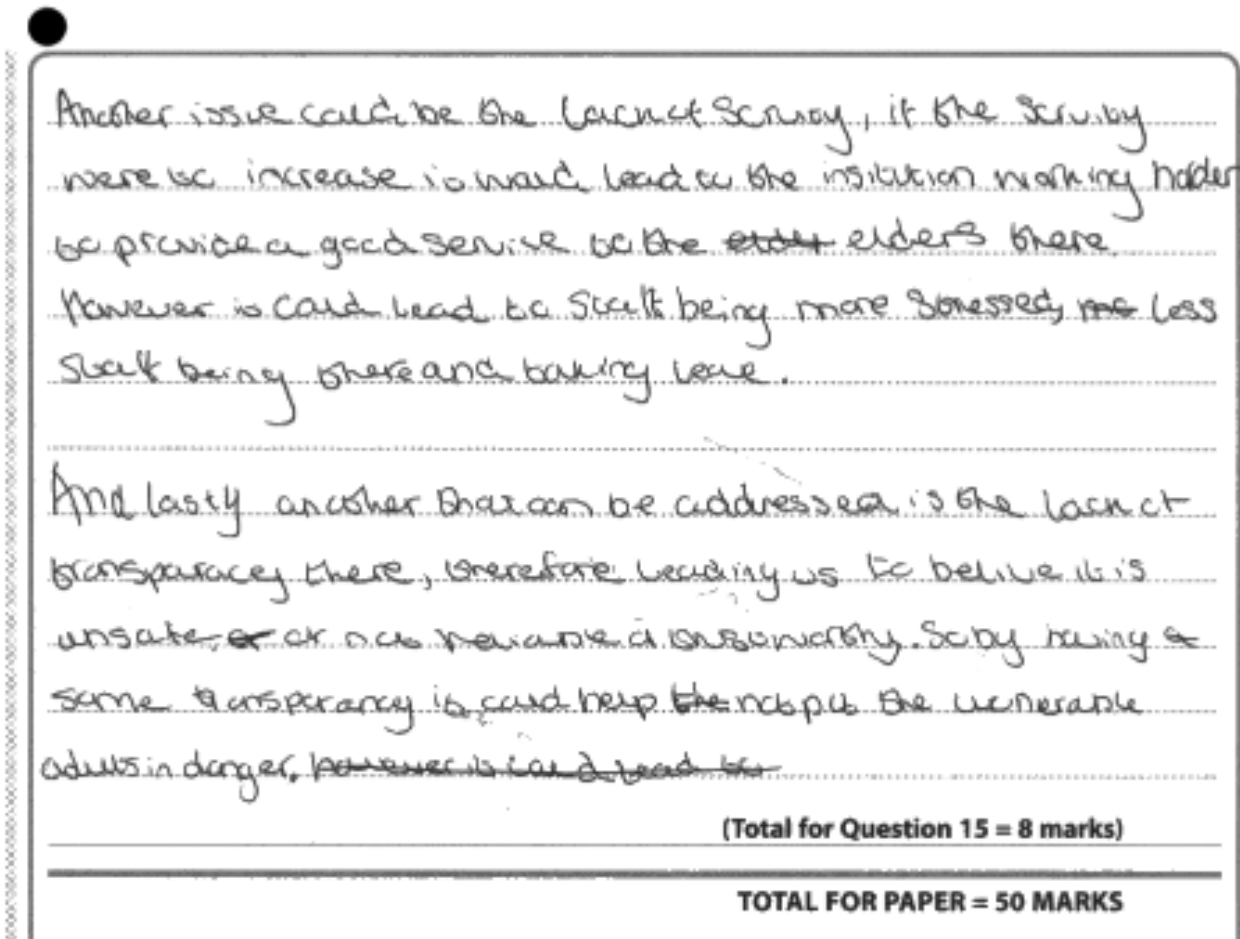 Another issue could be the lack of scruity, if the scruity
were to increase it would lead to the insitution working harder
to provide a good service to the elders there.
However it could lead to staff being more stressed, less
staff being there and taking leave.
And lastly another that can be addressed is the lack of
transparacey there, therefore leading us to belive it is
unsafe, or not reliable & trustworthy. So by having
some transparancy it could help not put the vulnerable
adults in danger. however it could lead to
(Total for Question 15 = 8 marks)
TOTAL FOR PAPER = 50 MARKS